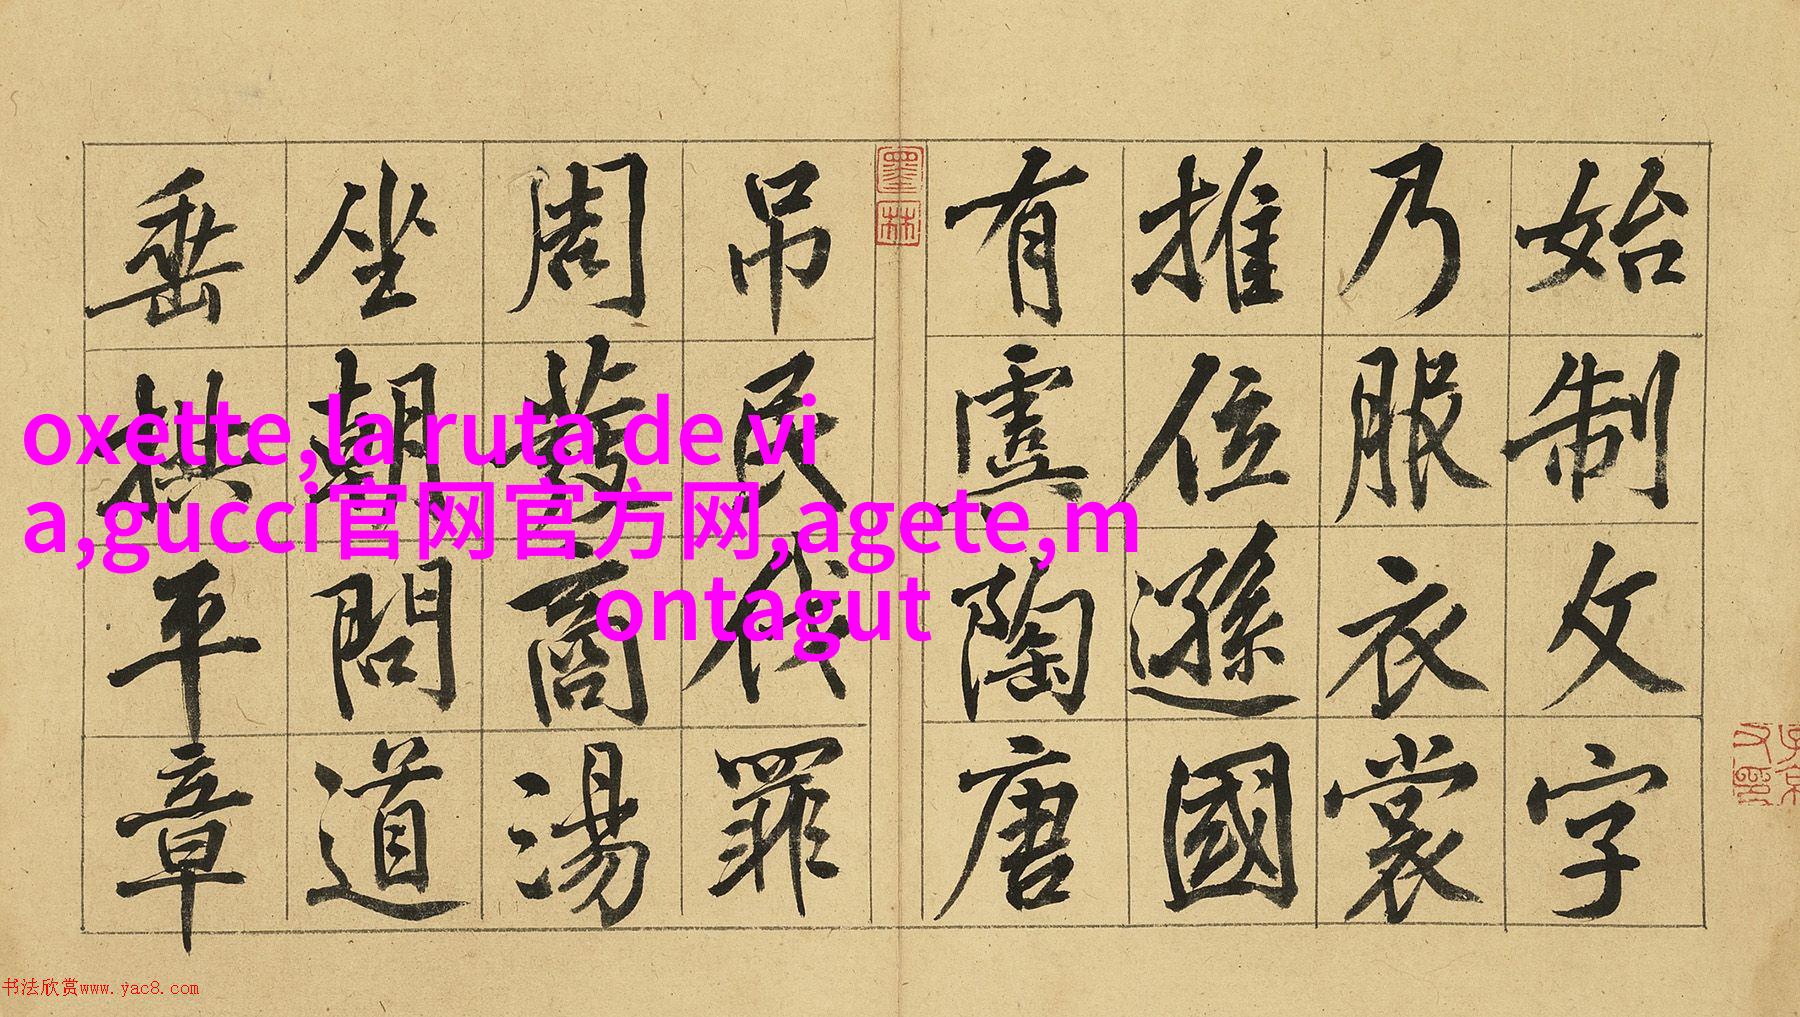 始制文字
乃服衣裳
推位遜國
有虞陶唐
吊民伐罪
周發商湯
坐朝問道
垂拱平章
墨林
oxette,la ruta de vi
a,gucci官网官方网,agete,m
ontagut
书法欣赏www.yac8.com